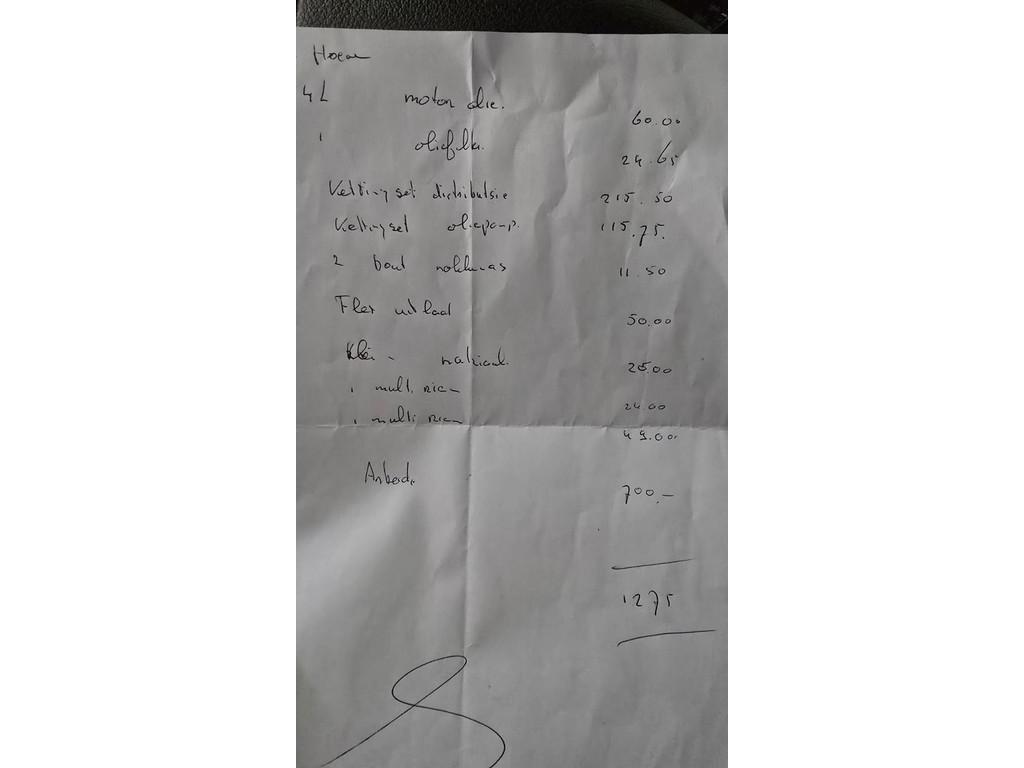 4 L motor olie. 60.00
1 oliefilter. 24.65
Kettingset distributsie 215.50
Kettingset oliepomp. 115.75.
2 bout nokkenas 11.50
Flex uitlaat 50.00
Klein materiaal. 25.00
1 multi riem 24.00
1 multi riem 49.00
Arbeid. 700.-
1275